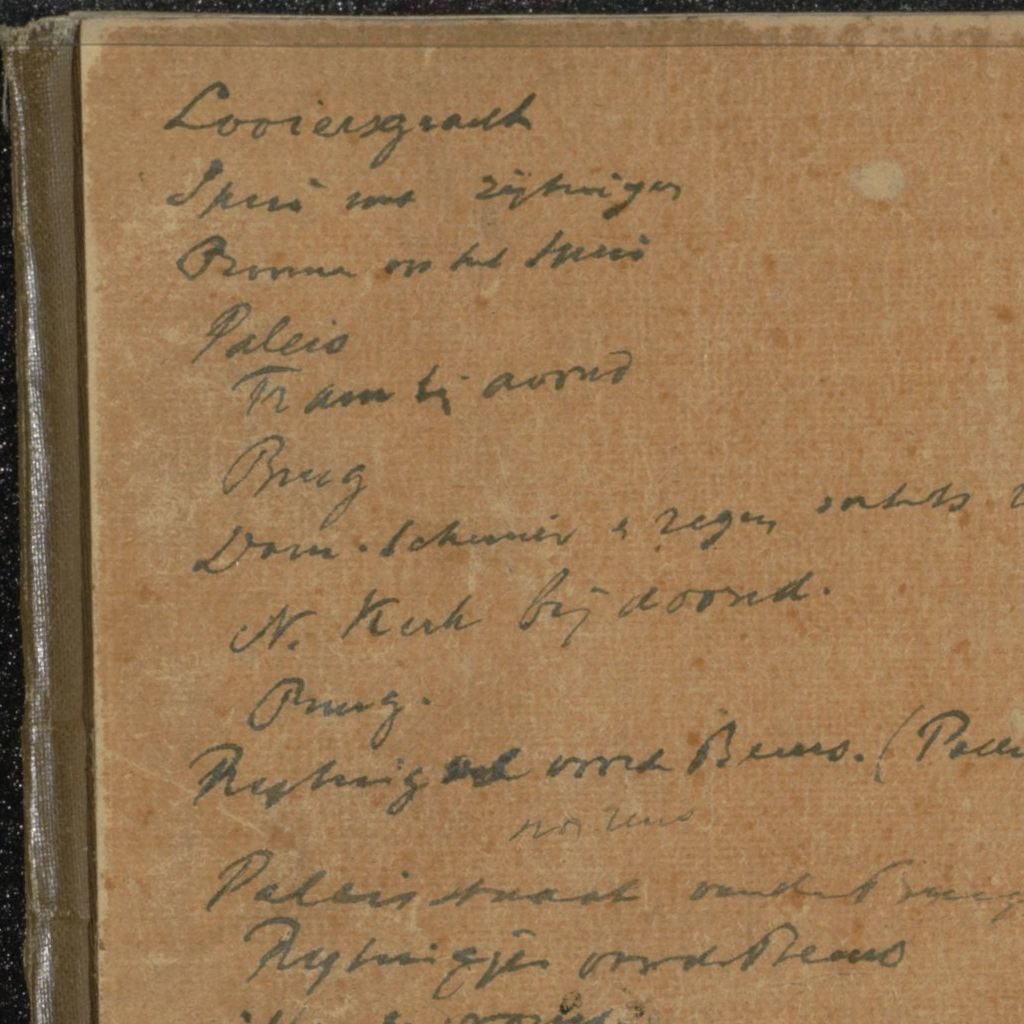 Looiersgracht
Spui met rijtuigen
Boomen op het Spui
Paleis
Tram bij avond
Brug
Dam. Schemer & regen
N. Kerk bij avond.
Brug.
Rijtuig voor de Beurs. (
Paleisstraat van de Brug
Rijtuigje voor de Beurs